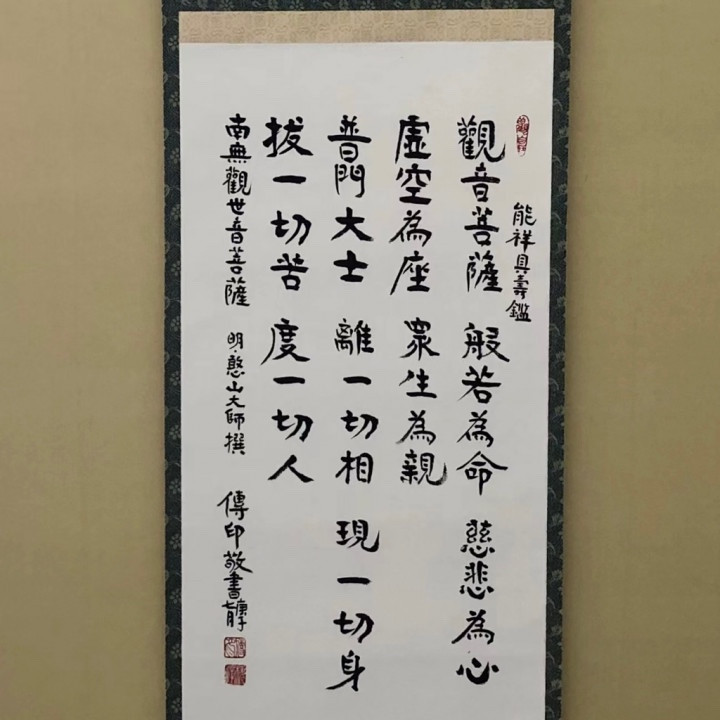 能祥具壽鑑
觀音菩薩 般若為命 慈悲為心
虛空為座 眾生為親
普門大士 離一切相 現一切身
拔一切苦 度一切人
南無觀世音菩薩 明憨山大師撰 傳印敬書